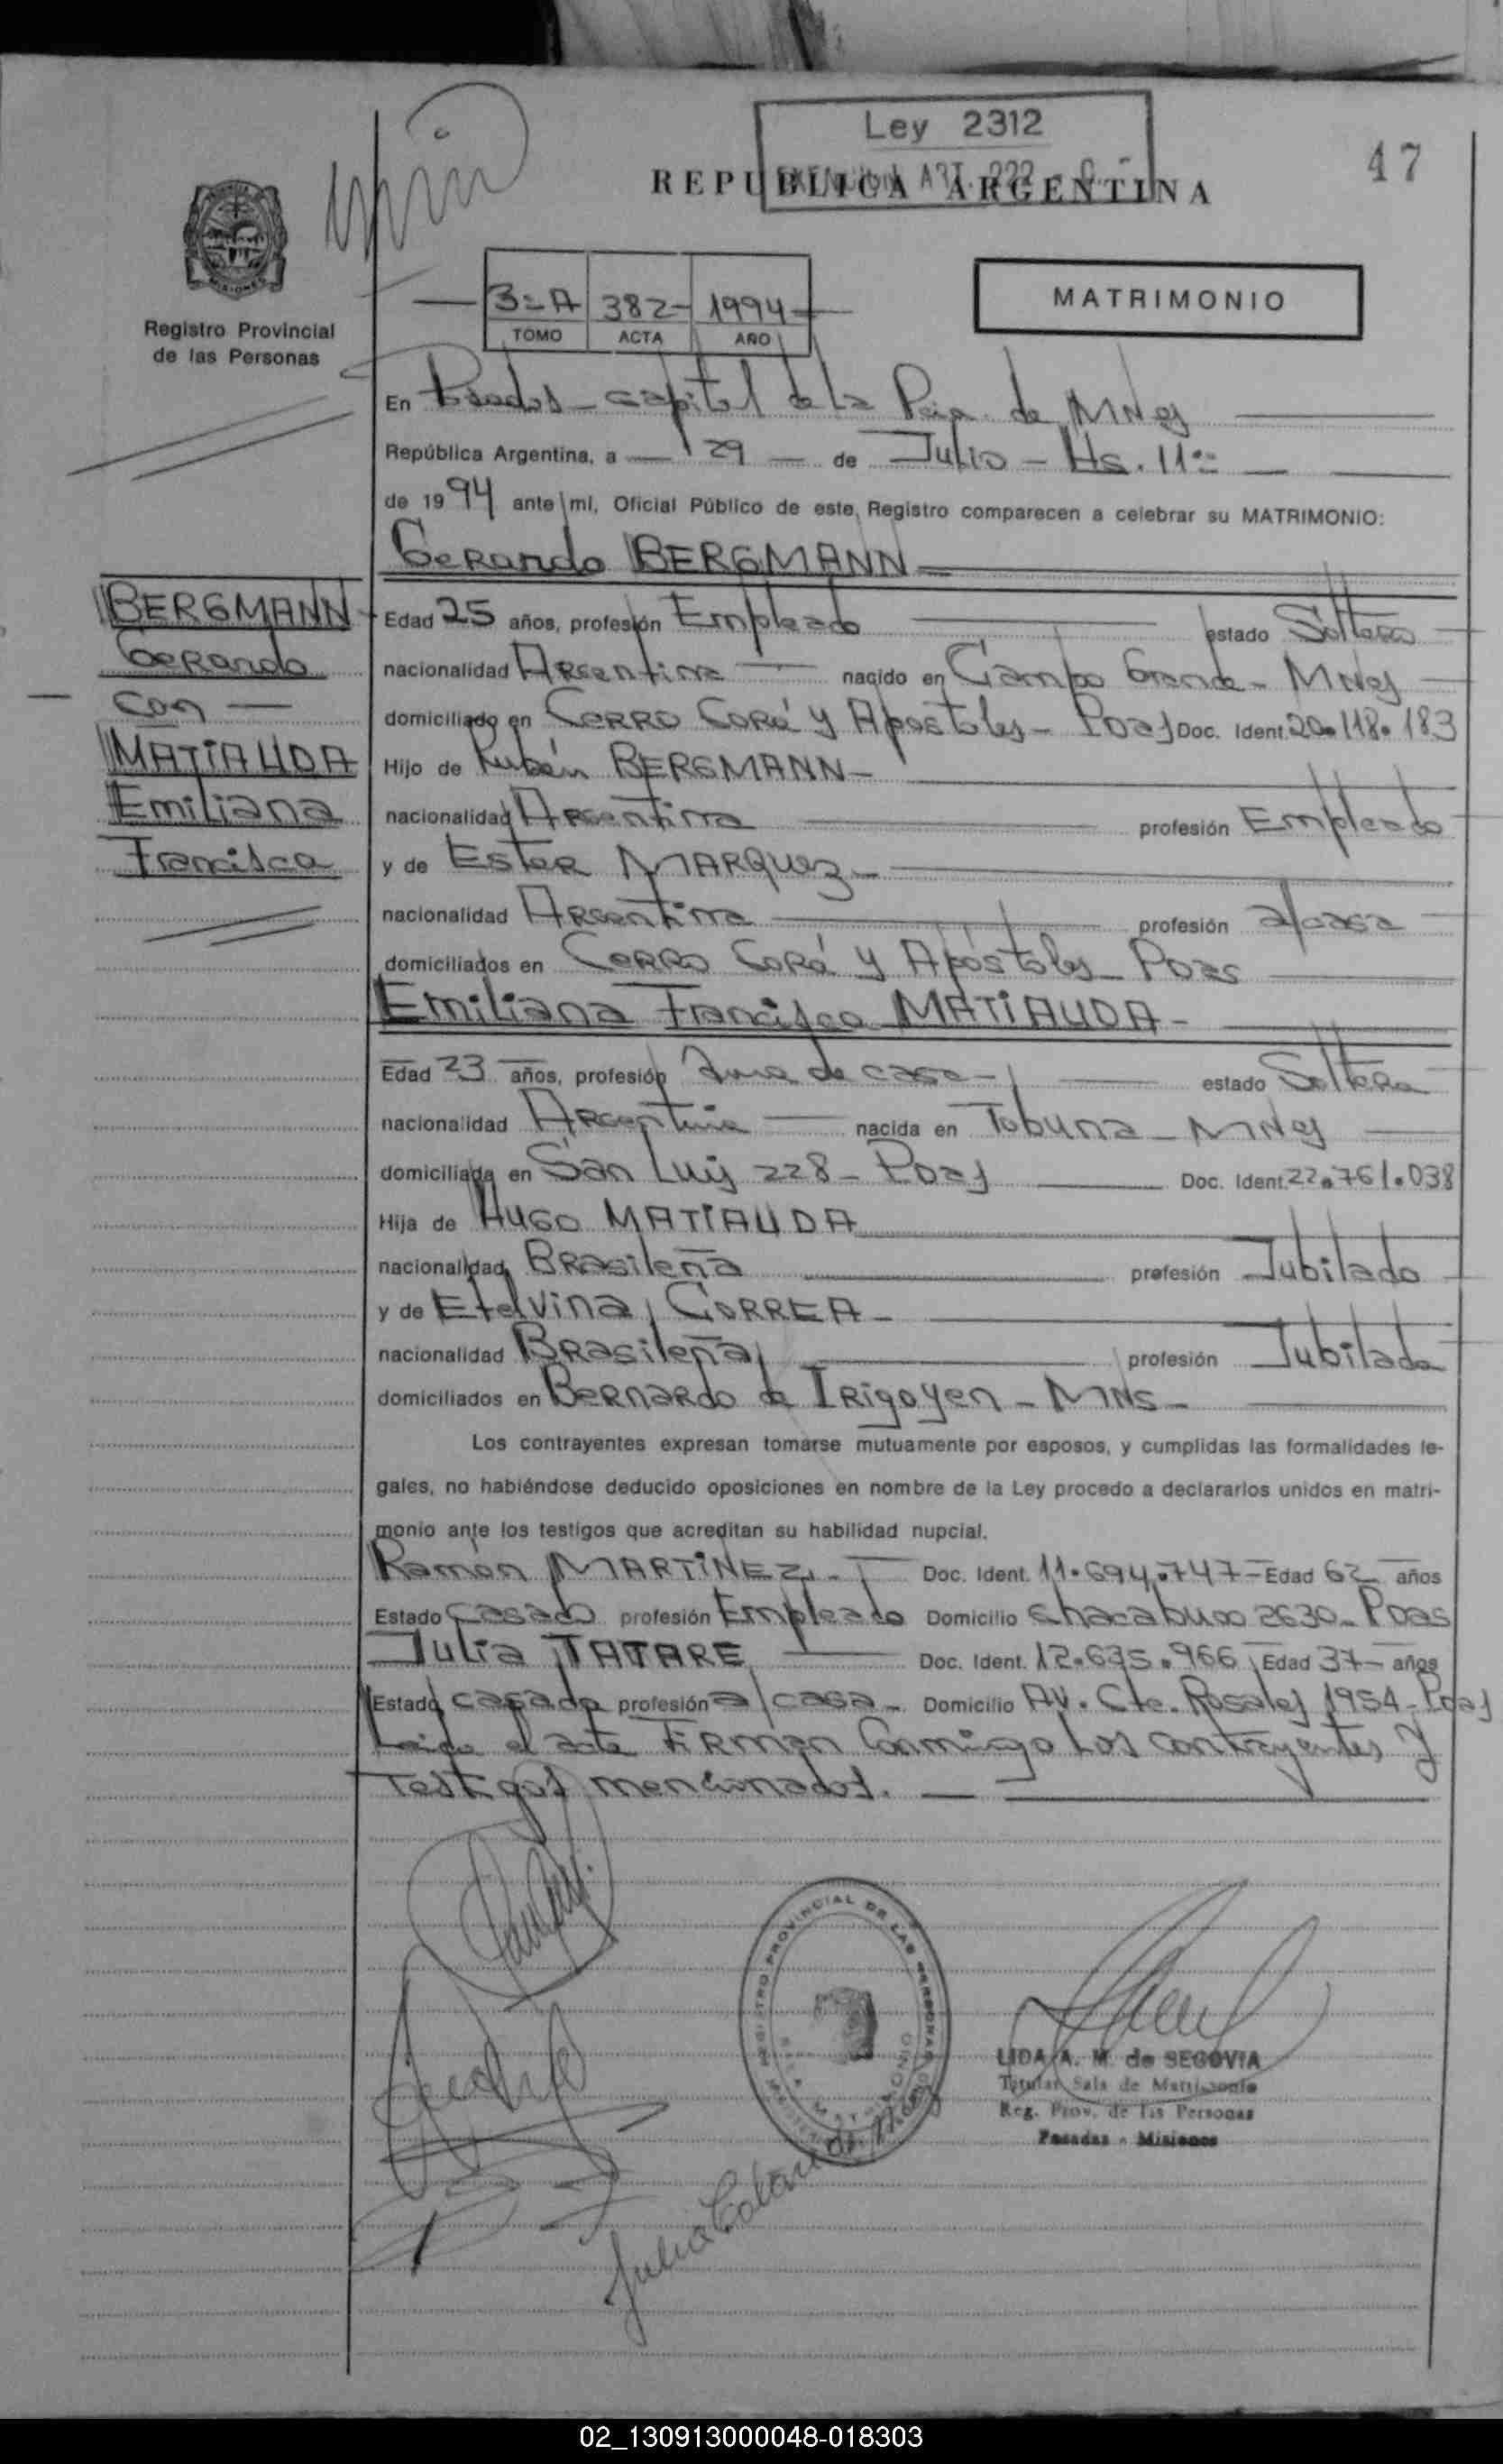 Ley 2312
47
REPUBLICA ARGENTINA
3=A 382- 1994
TOMO ACTA AÑO
MATRIMONIO
Registro Provincial
de las Personas
En Posadas - capital de la Pcia. de MNes
República Argentina, a 29 de Julio - Hs. 11
de 1994 ante mí, Oficial Público de este Registro comparecen a celebrar su MATRIMONIO:
Gerardo BERGMANN
BERGMANN
Gerardo
— con —
MATIAUDA
Emiliana
Francisca
Edad 25 años, profesión Empleado estado Soltero
nacionalidad Argentina nacido en Campo Grande - MNes
domiciliado en Cerro Corá y Apostoles - Pdas Doc. Ident. 20.118.183
Hijo de Rubén BERGMANN -
nacionalidad Argentina profesión Empleado
y de Ester MARQUEZ -
nacionalidad Argentina profesión a/casa
domiciliados en Cerro Corá y Apóstoles - Pdas
Emiliana Francisca MATIAUDA -
Edad 23 años, profesión Ama de casa - estado Soltera
nacionalidad Argentina nacida en Tobuna - MNes
domiciliada en San Luis 228 - Pdas Doc. Ident. 22.761.038
Hija de Hugo MATIAUDA
nacionalidad Brasileña profesión Jubilado
y de Etelvina CORREA -
nacionalidad Brasileña profesión Jubilada
domiciliados en Bernardo de Irigoyen - MNS -
Los contrayentes expresan tomarse mutuamente por esposos, y cumplidas las formalidades le-
gales, no habiéndose deducido oposiciones en nombre de la Ley procedo a declararlos unidos en matri-
monio ante los testigos que acreditan su habilidad nupcial.
Ramón MARTINEZ - Doc. Ident. 11.694.747 - Edad 62 años
Estado Casado profesión Empleado Domicilio Chacabuco 2630 - Pdas
Julia TATARE Doc. Ident. 12.635.966 Edad 37 - años
Estado casada profesión a/casa - Domicilio AV. Cte. Rosales 1954 - Pdas
Leida el acta FIRMAN Conmigo Los contrayentes y
Testigos mencionados.
REGISTRO PROVINCIAL DE LAS PERSONAS
LIDA A. M. de SEGOVIA
Titular Sala de Matrimonio
Reg. Prov. de las Personas
Posadas - Misiones
02_130913000048-018303